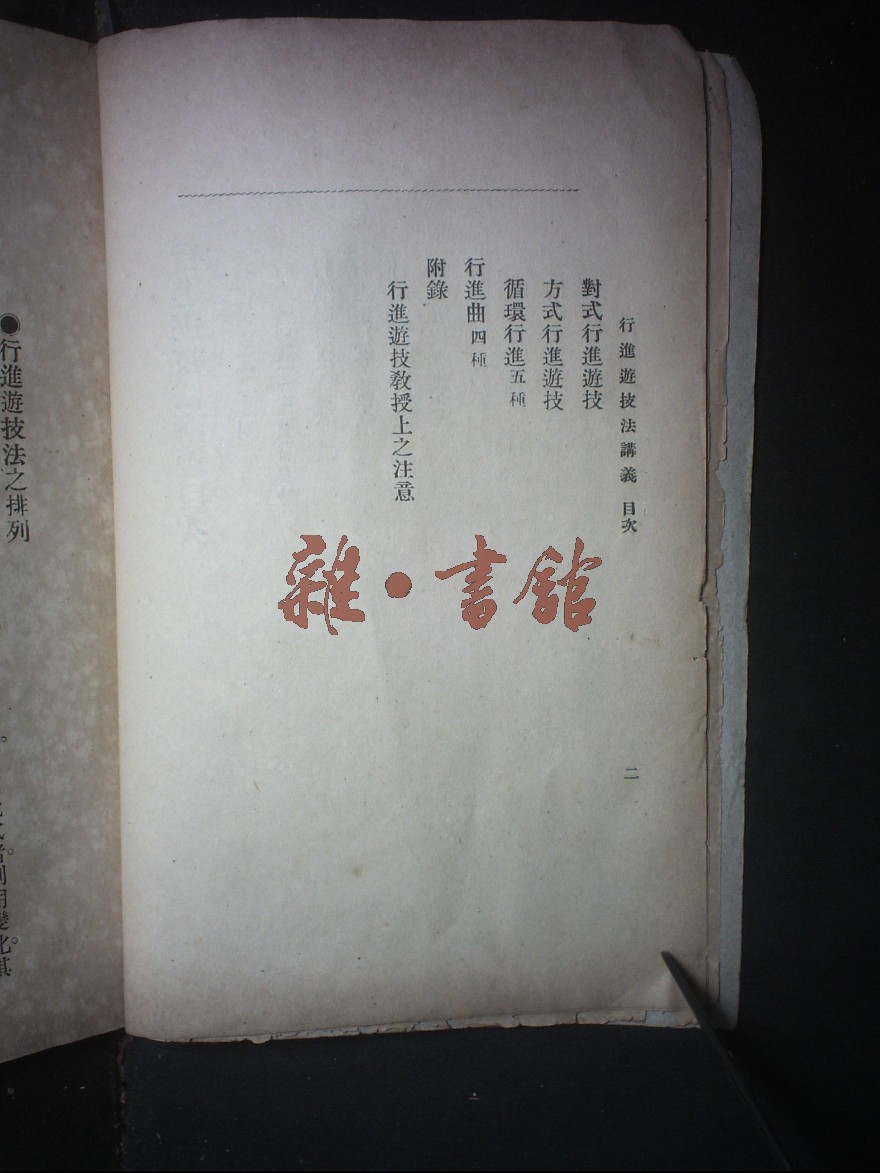 行進遊技法講義 目次
二
對式行進遊技
方式行進遊技
循環行進五種
行進曲四種
附錄
行進遊技教授上之注意
雜•書館
●行進遊技法之排列